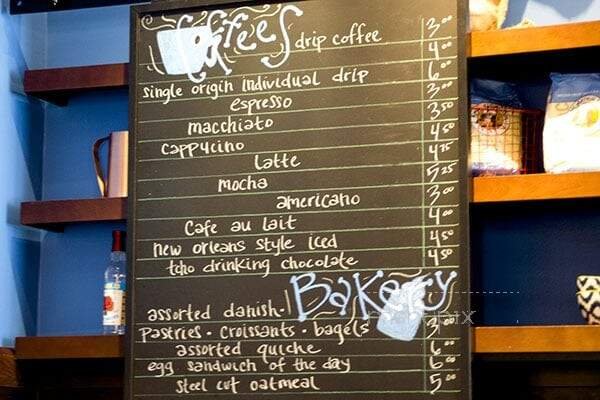 Coffees
drip coffee 3.00
4.00
single origin individual drip 6.00
espresso 3.00
macchiato 3.50
cappucino 4.50
latte 4.75
mocha 5.25
americano 3.00
Cafe au lait 4.00
new orleans style iced 4.50
tcho drinking chocolate 4.50
Bakery
assorted danish-
pastries · croissants · bagels 3.00
assorted quiche 6.00
egg sandwich of the day 6.00
steel cut oatmeal 5.00